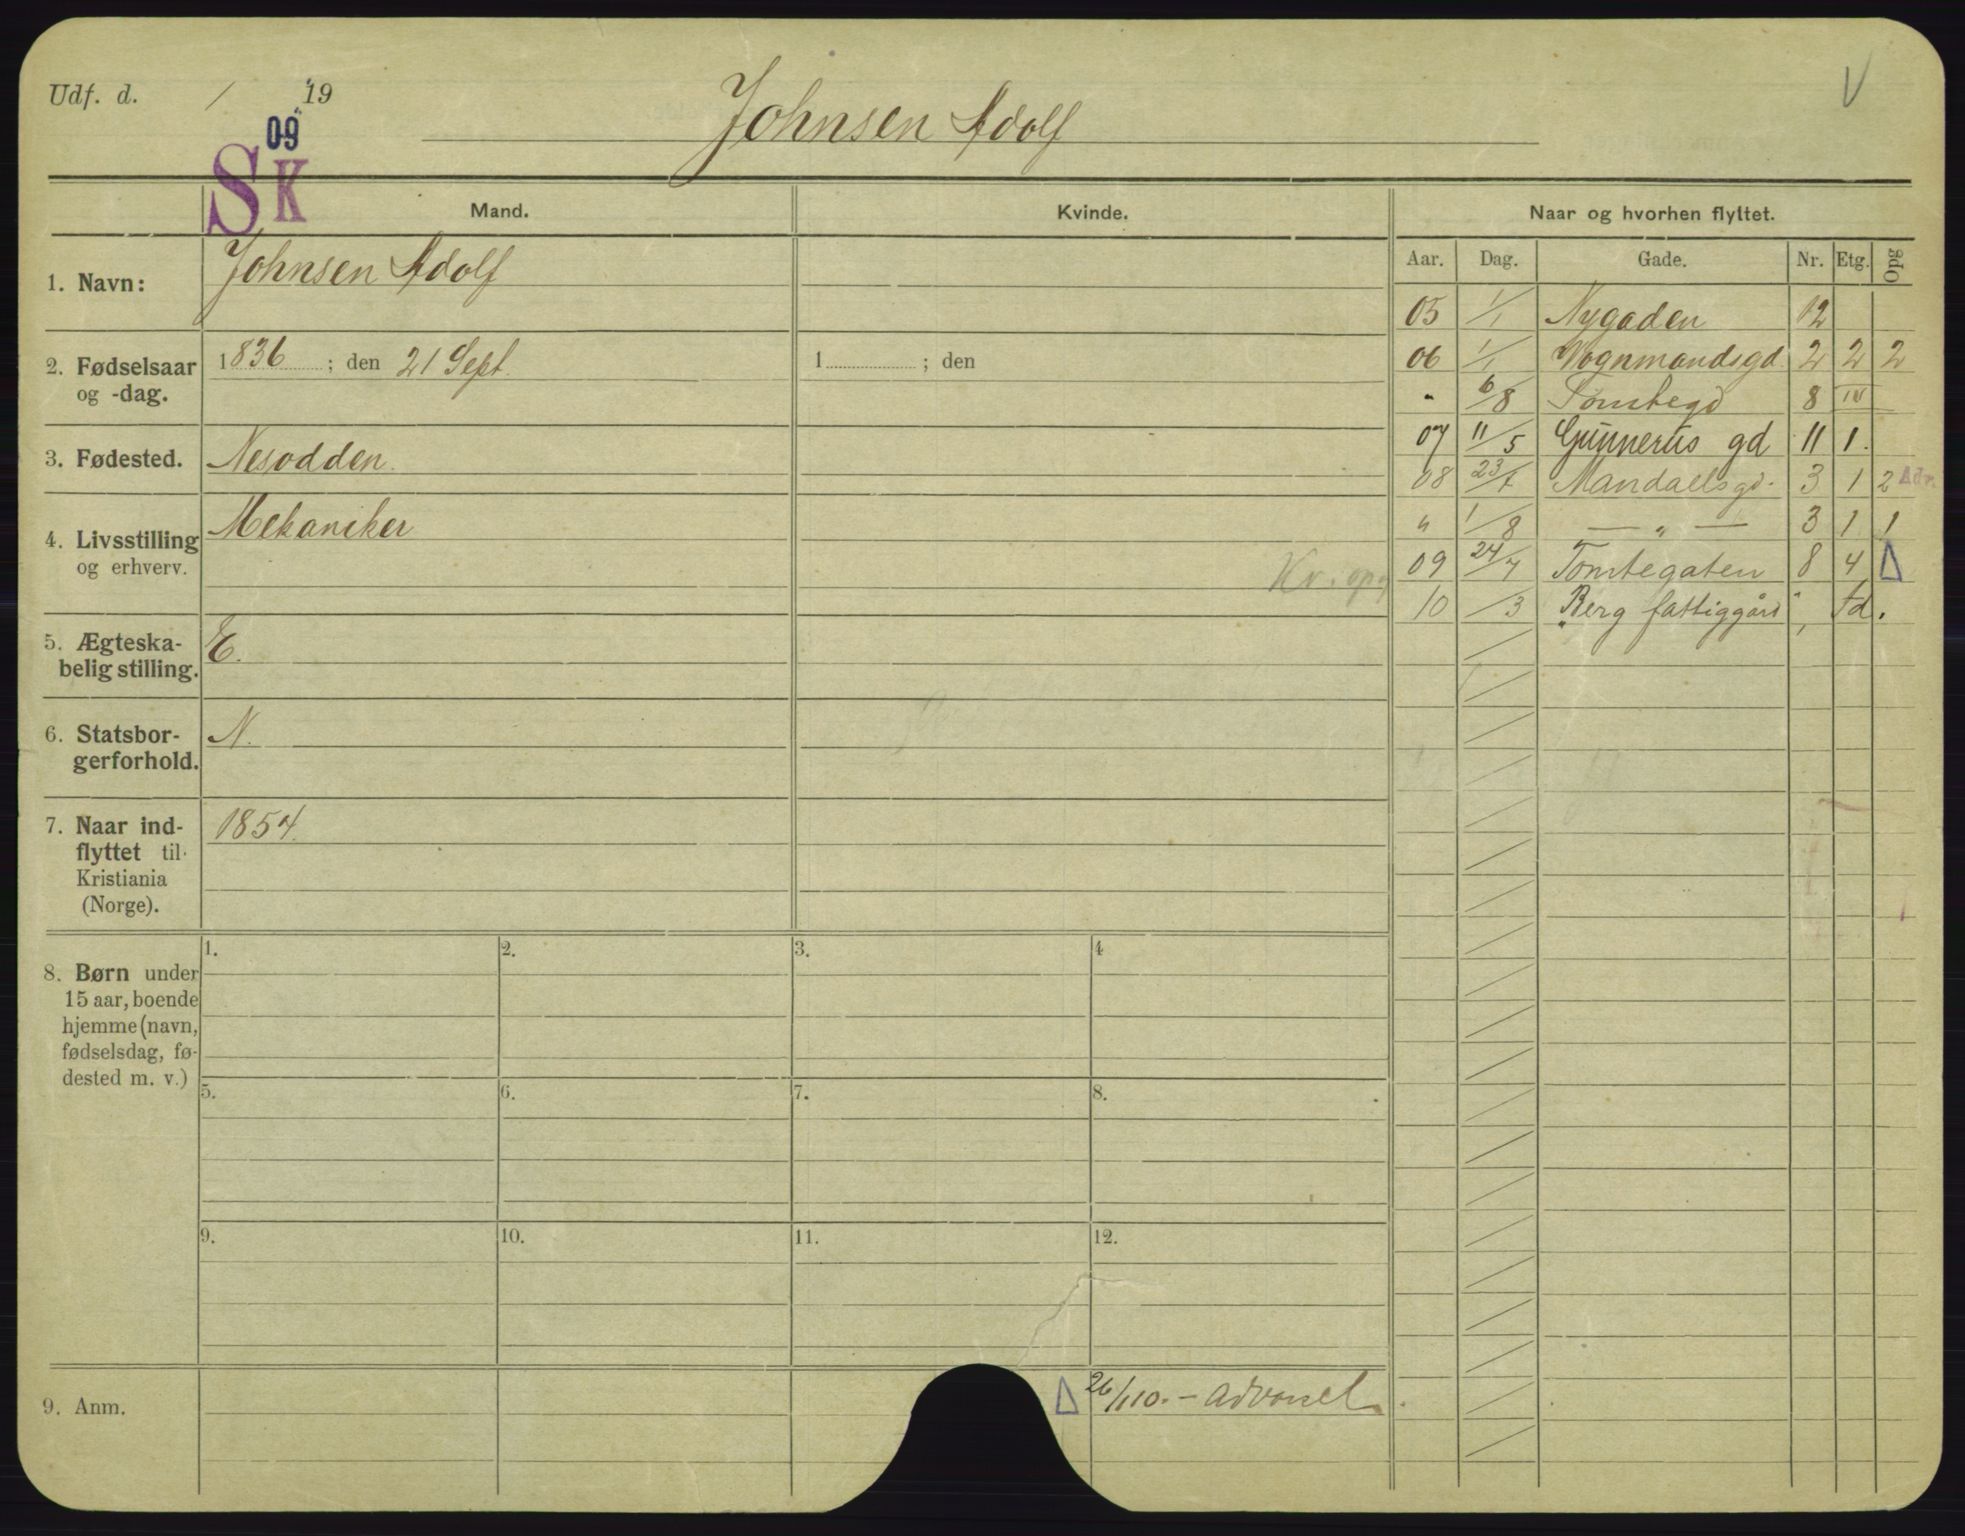 Udf. d. / 19
09
SK
Johnsen Adolf
V
Mand.
Kvinde.
Naar og hvorhen flyttet.
Aar. Dag. Gade. Nr. Etg. Opg
1. Navn: Johnsen Adolf
2. Fødselsaar og -dag. 1836 ; den 21 Sept. 1 ; den
3. Fødested. Nesodden.
4. Livsstilling og erhverv. Mekaniker
Kv. opg
5. Ægteska-
belig stilling. E.
6. Statsbor-
gerforhold. N.
7. Naar ind-
flyttet til
Kristiania
(Norge). 1854.
05 1/1 Nygaden 12
06 1/1 Vognmandsgd. 2 2 2
" 6/8 Tomtegd 8 IV
07 11/5 Gunnerus gd 11 1.
08 23/7 Mandalsgd. 3 1 2 Adr.
" 1/8 — " — 3 1 1
09 24/7 Tomtegaten 8 4 Δ
10 /3 "Berg fattiggård", Fd.
8. Børn under
15 aar, boende
hjemme (navn,
fødselsdag, fø-
dested m. v.)
1. 2. 3. 4
5. 6. 7. 8.
9. 10. 11. 12.
9. Anm.
Δ 26/1 10. –